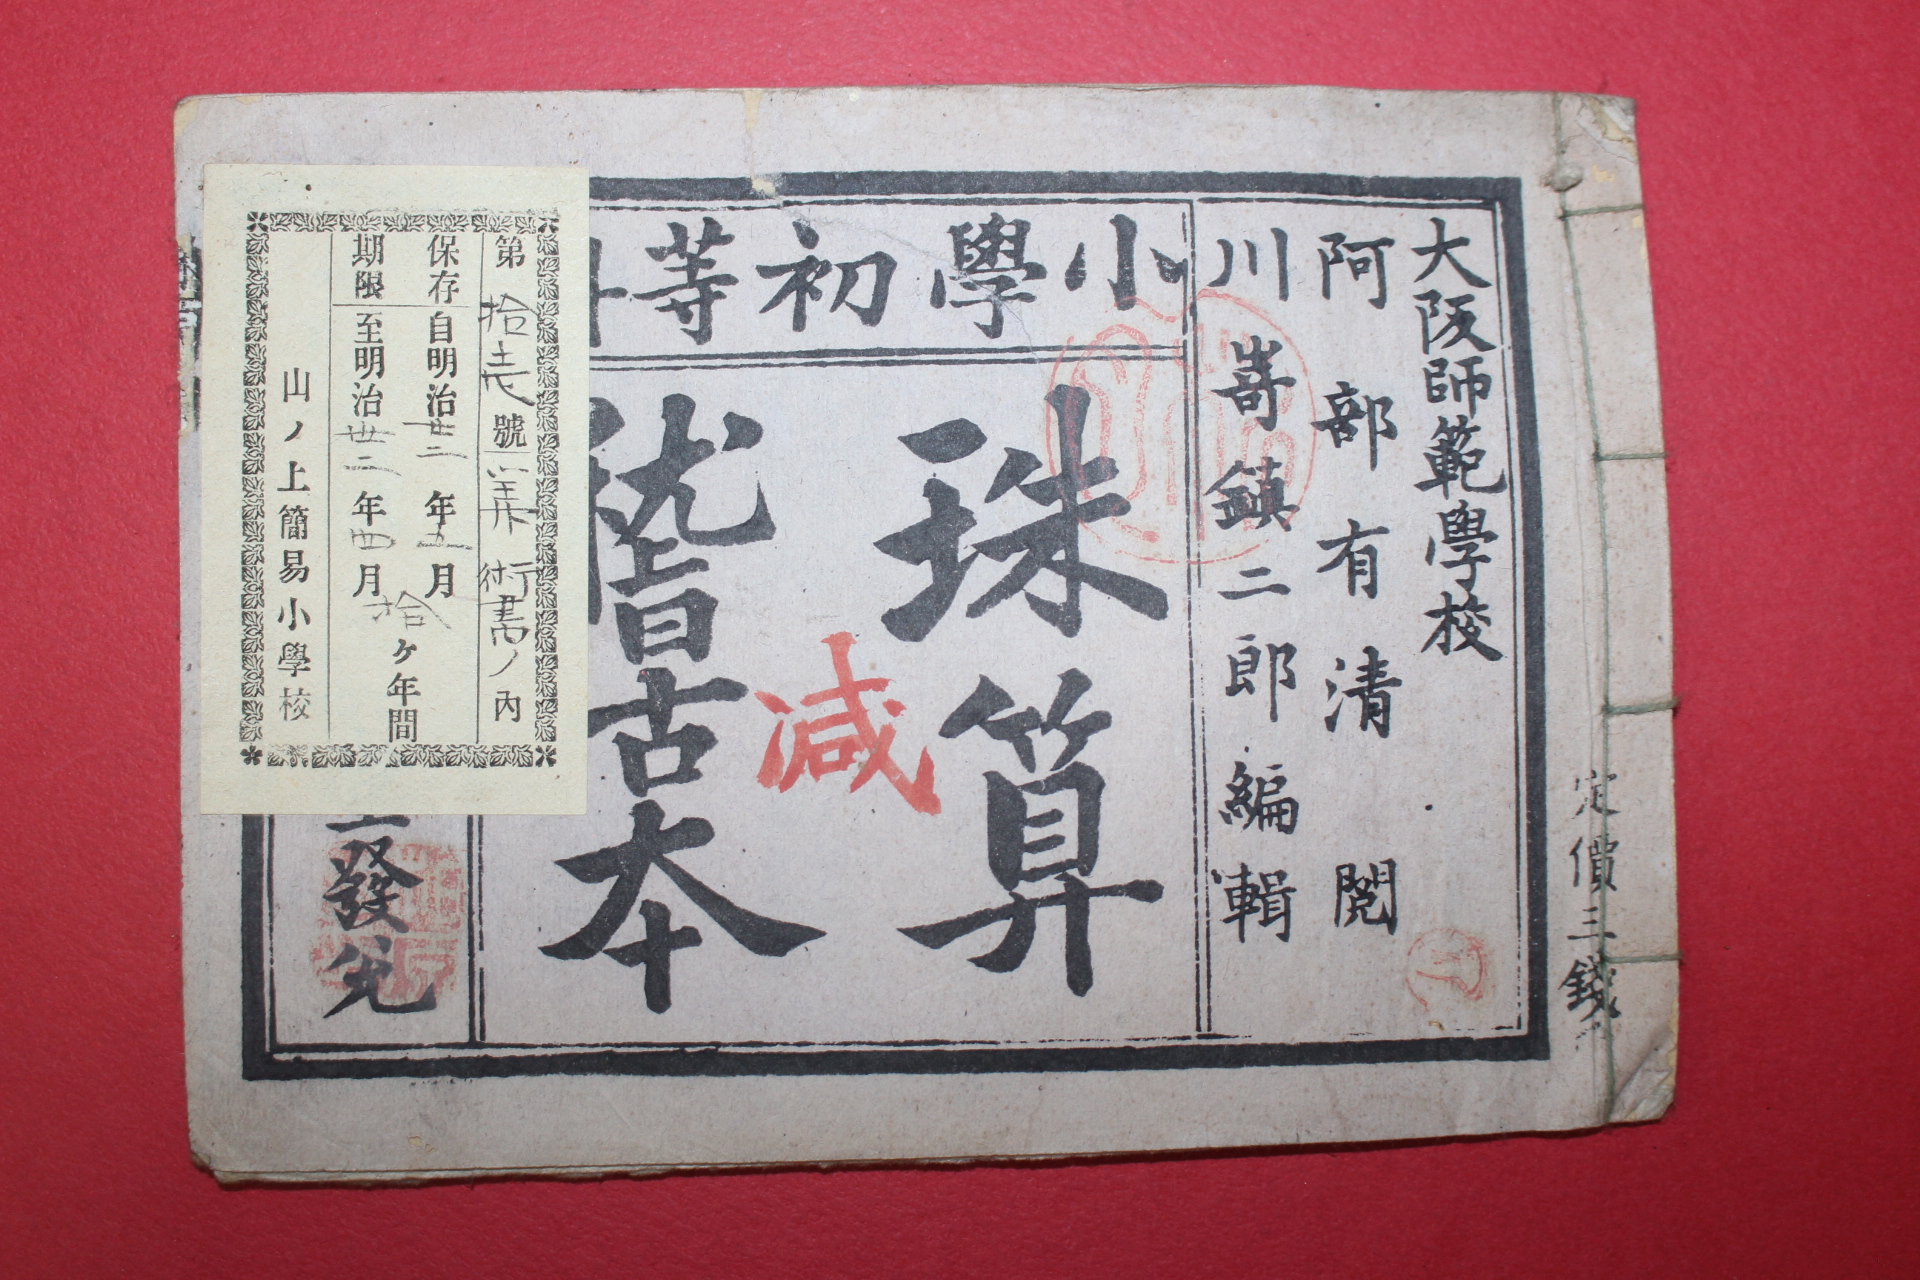 定價三錢
大阪師範學校
阿部有清閲
川嵜鎮二郎編輯
小學初等科
珠算
稽古本
減
發兌
第拾壱號算術書ノ內
保存期限
自明治廿三年五月
至明治卅二年四月
拾ヶ年間
山ノ上簡易小學校